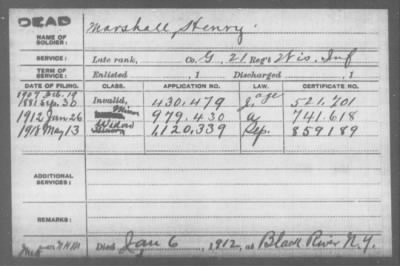 DEAD
NAME OF SOLDIER:
Marshall, Henry
SERVICE:
Late rank, Co. G, 21 Reg't Wis. Inf
TERM OF SERVICE:
Enlisted , 1 Discharged , 1
DATE OF FILING. CLASS. APPLICATION NO. LAW. CERTIFICATE NO.
1907 Feb. 19 age
1881 Sep. 30 Invalid, 430.479 521.701
1912 Jan 26 979.430 a 741.618
1918 May 13 Widow 1,120.339 Sep. 859189
ADDITIONAL SERVICES:
REMARKS:
Died Jan 6, 1912, at Black River N.Y.